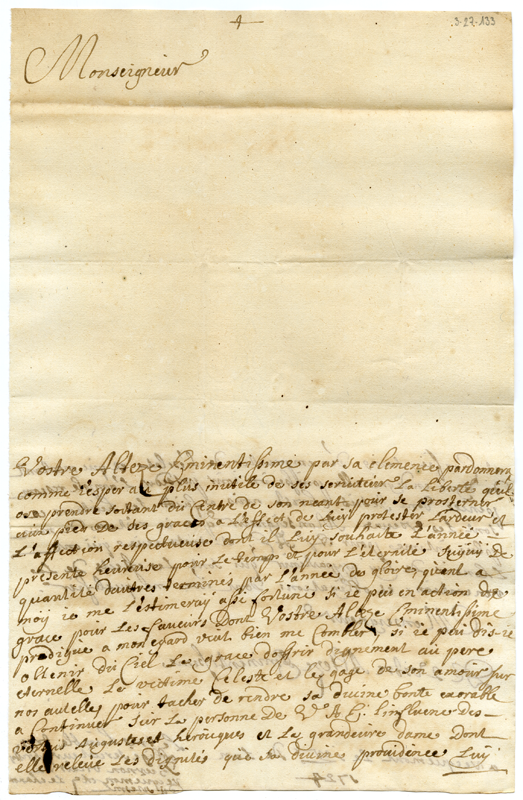 4
3-27-133
Monseigneur
Vostre Alteze Eminentissime par sa clemence pardonnera
comme l'espere le plus inutile de ses serviteur La Liberté qu'il
ose prendre sortant du Centre de son neant pour se prosterner
aux pied De ses graces a L'effect de Luy protester L'ardeur et
L'affection respectueuse dont il Luy souhaite L'année
presente heureuse pour Le temps et pour L'eternité de
quantité d'autres terminés par L'année de gloire, quant a
moy ie me L'estimeray assé fortuné si ie puis en action de
grace pour Les faveurs Dont Vostre Alteze Eminentissime
prodigue a mon egard veut bien me Combler si ie peu dis-ie
obtenir du Ciel Les grace d'offrir dignement au pere
eternelle Le victime Celeste et Le gage de son amour sur
nos autelle, pour tacher de rendre sa divine bonté
a Continuer sur La personne de V A E L'influene des
Augustes et heroiques et Les grandeure dame Dont
elle releve Les Dignités que sa divine providence Luy
1724